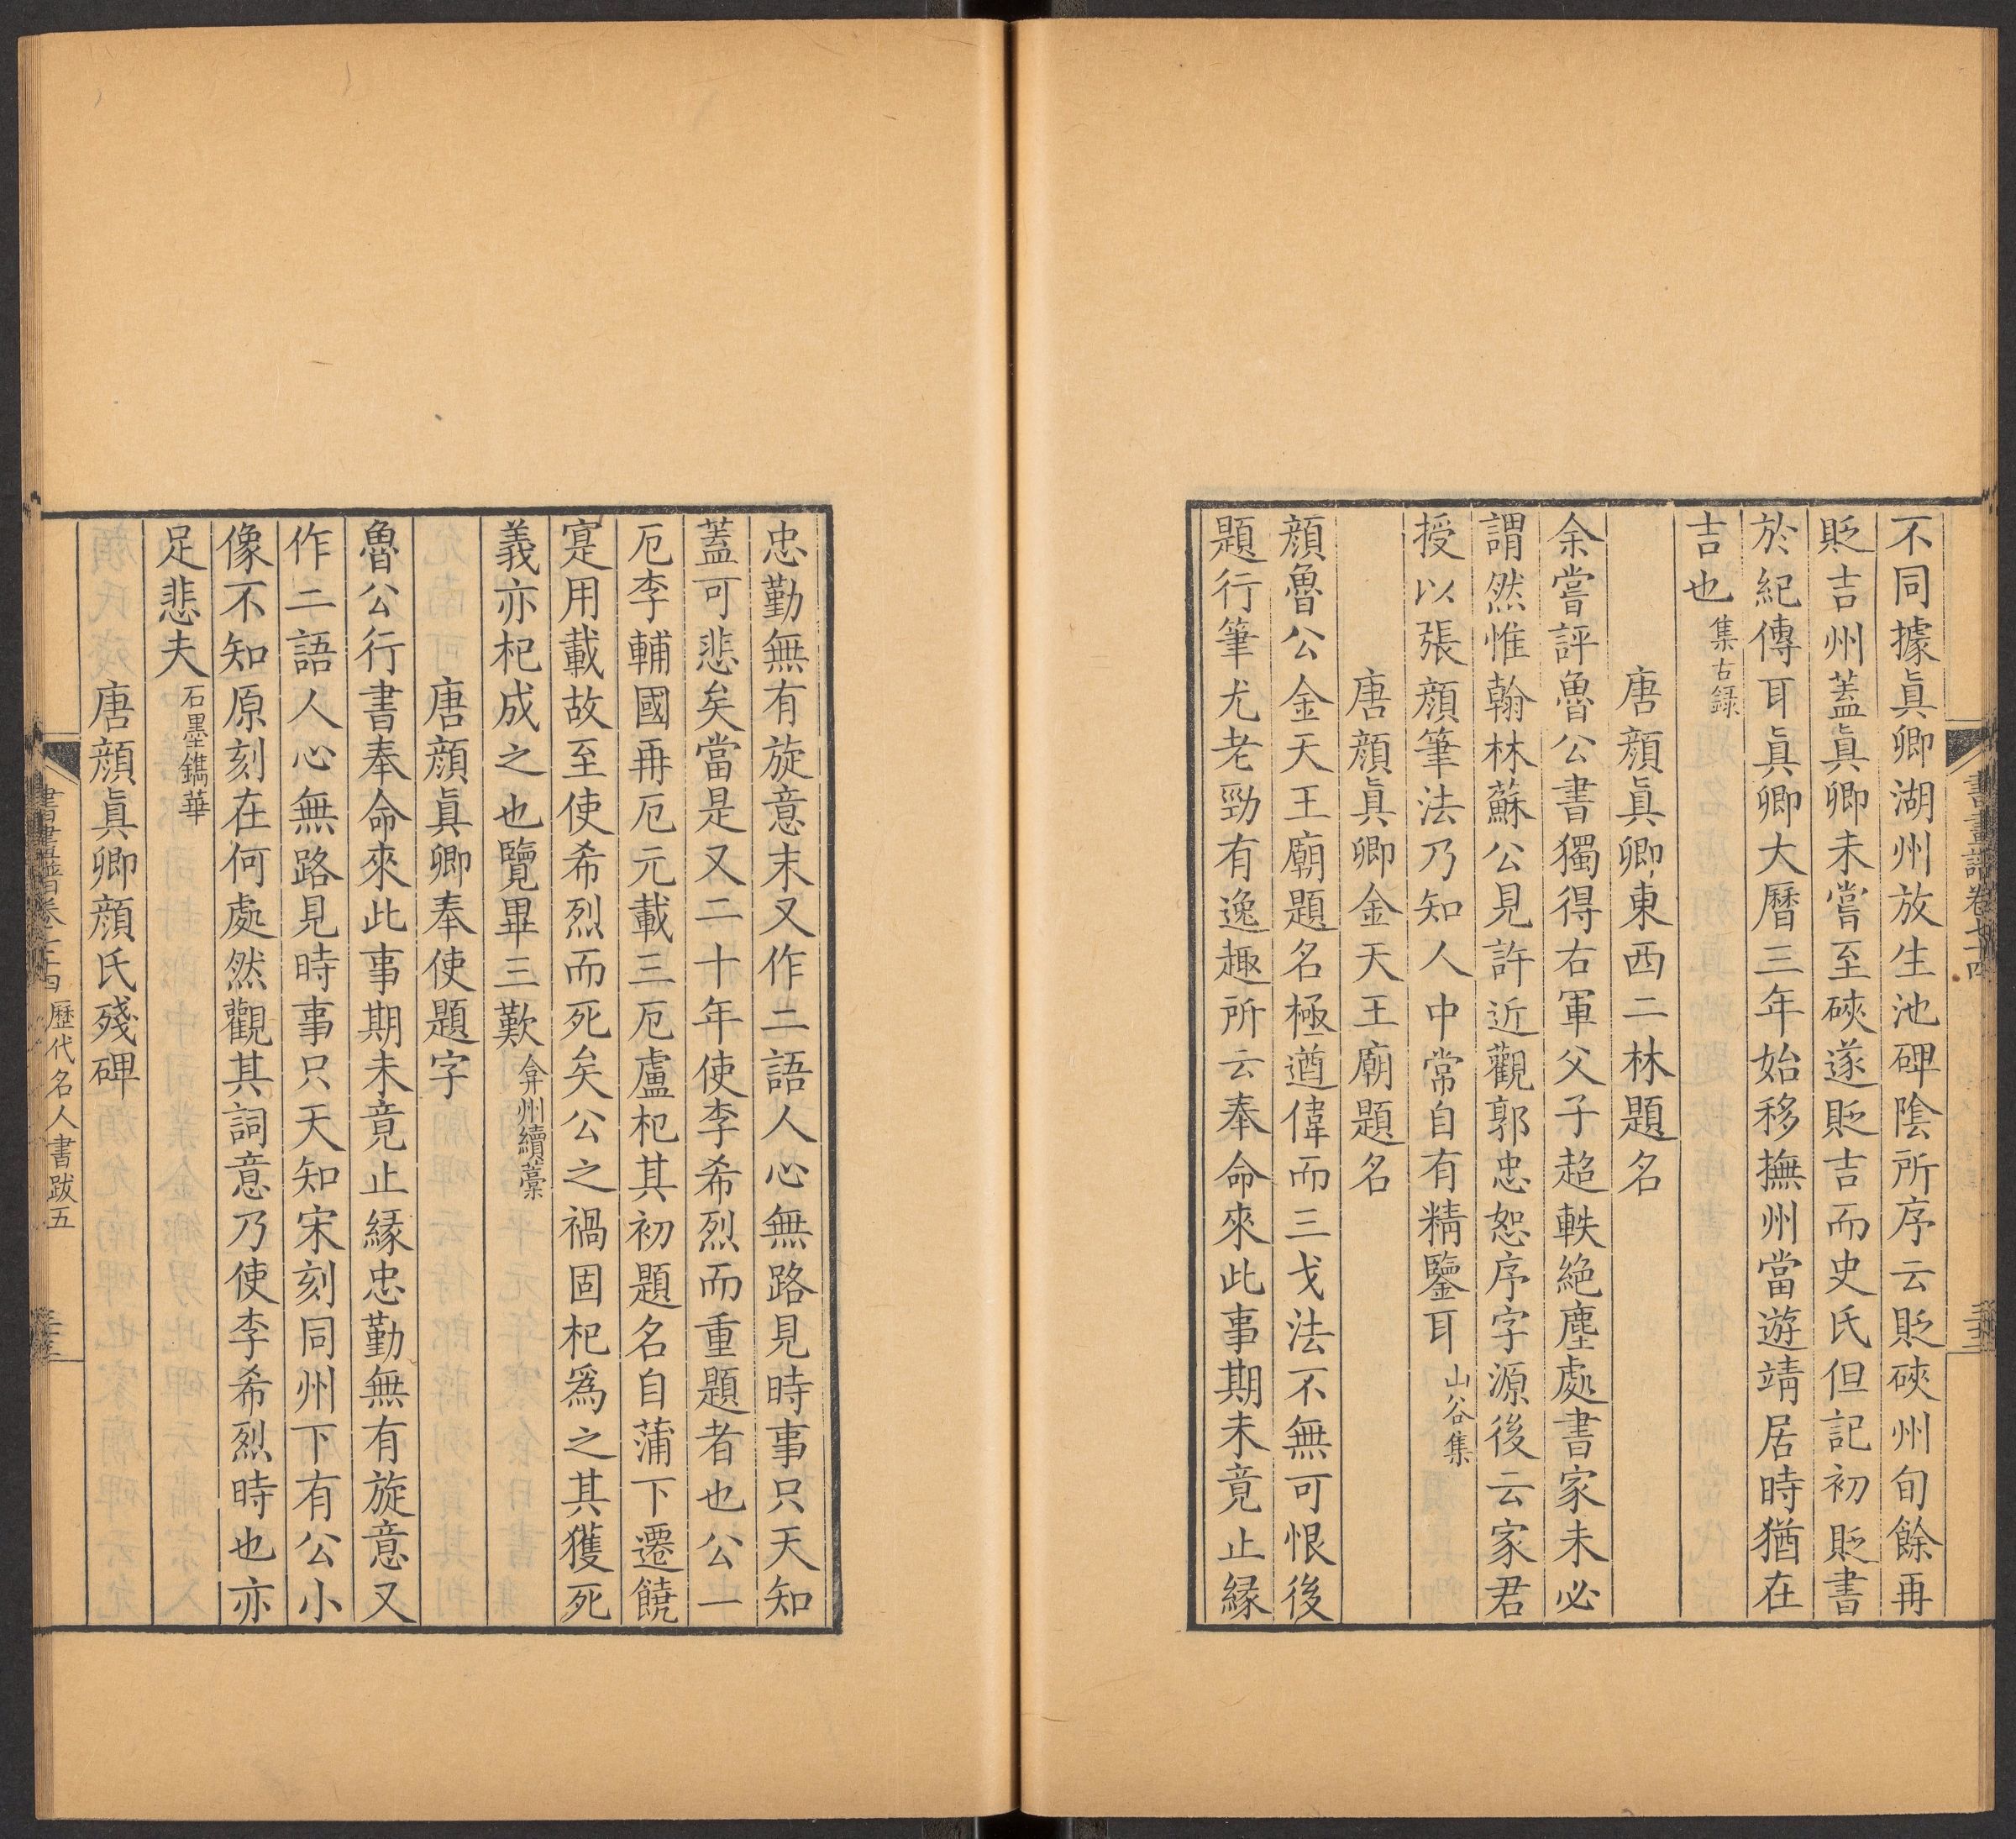 不同據眞卿湖州放生池碑陰所序云貶硤州旬餘再
貶吉州蓋眞卿未嘗至硤遂貶吉而史氏但記初貶書
於紀傳耳眞卿大曆三年始移撫州當遊靖居時猶在
吉也集古録
唐顔眞卿東西二林題名
余嘗評魯公書獨得右軍父子超軼絶塵處書家未必
謂然惟翰林蘇公見許近觀郭忠恕序字源後云家君
授以張顔筆法乃知人中常自有精鑒耳山谷集
唐顔眞卿金天王廟題名
顔魯公金天王廟題名極遒偉而三戈法不無可恨後
題行筆尤老勁有逸趣所云奉命來此事期未竟止緣
忠勤無有旋意末又作二語人心無路見時事只天知
蓋可悲矣當是又二十年使李希烈而重題者也公中一
厄李輔國再厄元載三厄盧杞其初題名自蒲下遷饒
寔用載故至使希烈而死矣公之禍固杞爲之其獲死
義亦杞成之也覽畢三歎弇州續藁
唐顔眞卿奉使題字
魯公行書奉命來此事期未竟止緣忠勤無有旋意又
作二語人心無路見時事只天知宋刻同州下有公小
像不知原刻在何處然觀其詞意乃使李希烈時也亦
足悲夫石墨鐫華
唐顔眞卿顔氏殘碑
書畫譜卷七十四 歷代名人書跋五